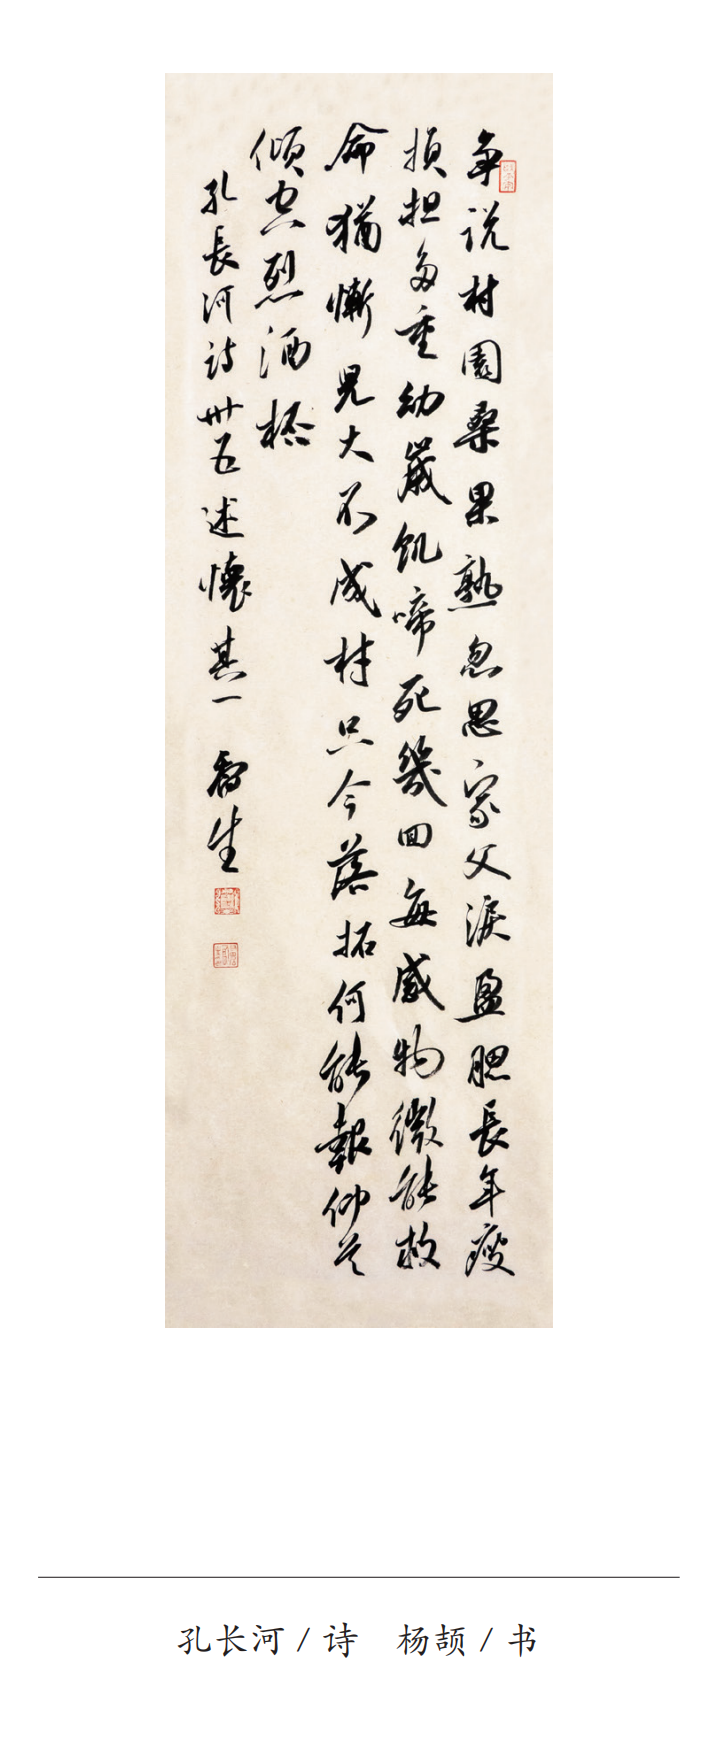 争说村园桑果熟忽思家父泪盈腮長年瘦
损担多重幼歲饥啼死幾回每感物微能救
命犹惭兒大不成材只今落拓何能報仰天
倾空烈酒杯
孔長河诗卅五述懷其一 生
孔长河/诗 杨颉/书